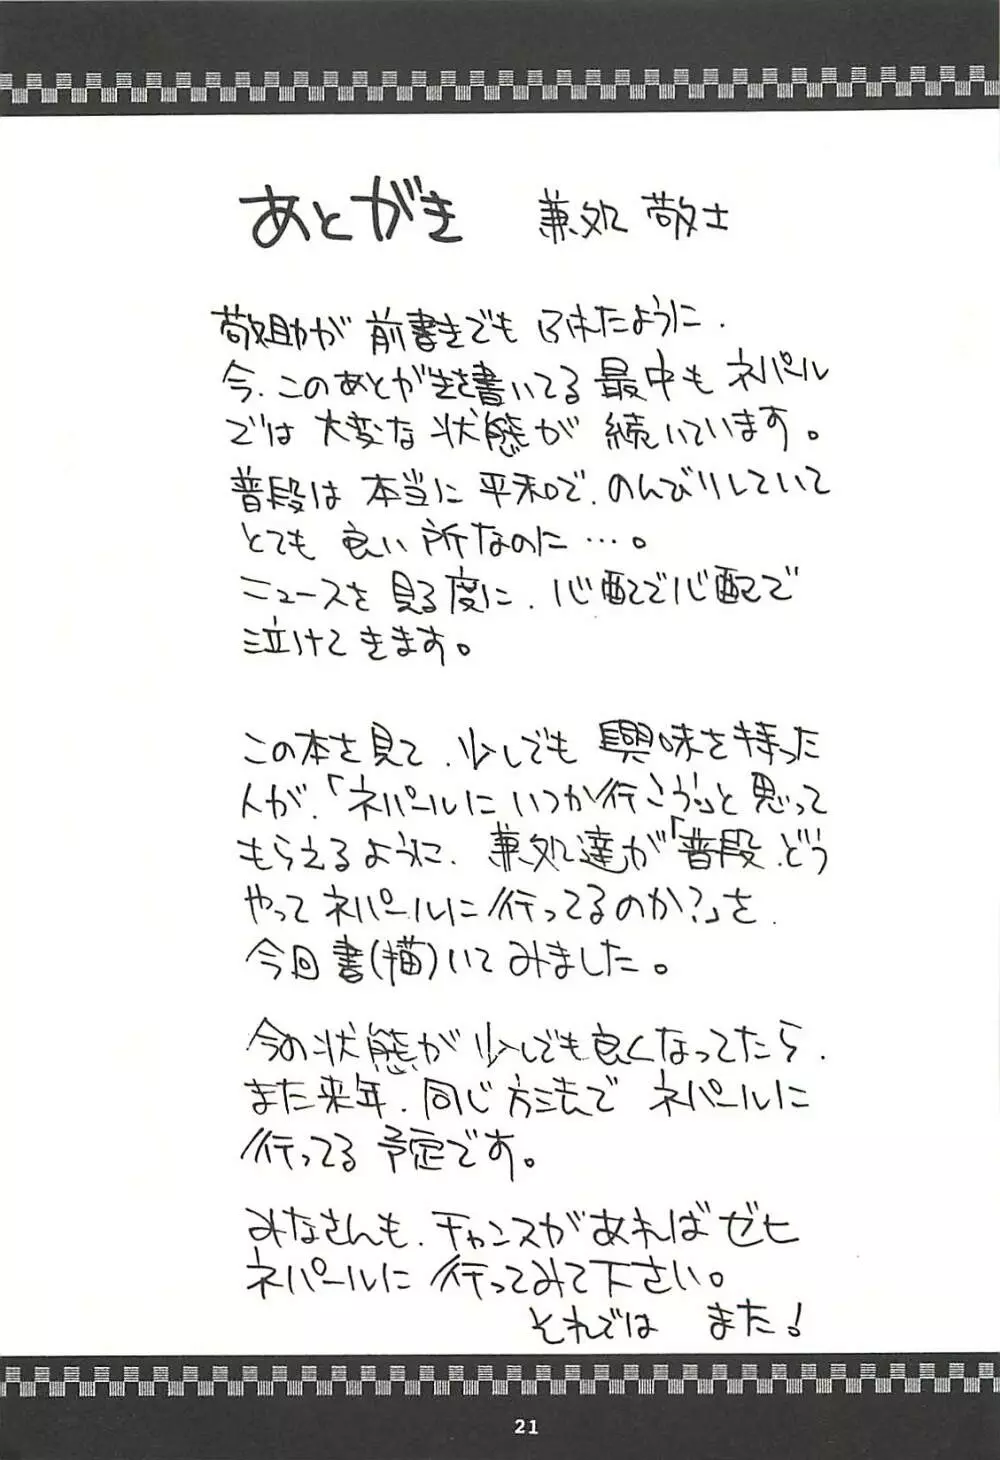 あとがき　兼処 敬士
敬助が 前書きでも ふれたように、
今、このあとがきを書いてる 最中も ネパール
では 大変な 状態が 続いています。
普段は 本当に 平和で、のんびりしていて
とても 良い 所なのに…。
ニュースを 見る度に、心配で心配で
泣けてきます。
この本を見て、少しでも 興味を持った
人が、「ネパールに いつか行こう」と思って
もらえるように、兼処達が「普段、どう
やって ネパールに 行ってるのか?」を、
今回 書(描)いて みました。
今の状態が 少しでも良くなってたら、
また来年、同じ方法で ネパールに
行ってる 予定です。
みなさんも、チャンスがあればゼヒ
ネパールに 行ってみて下さい。
それでは また!
21